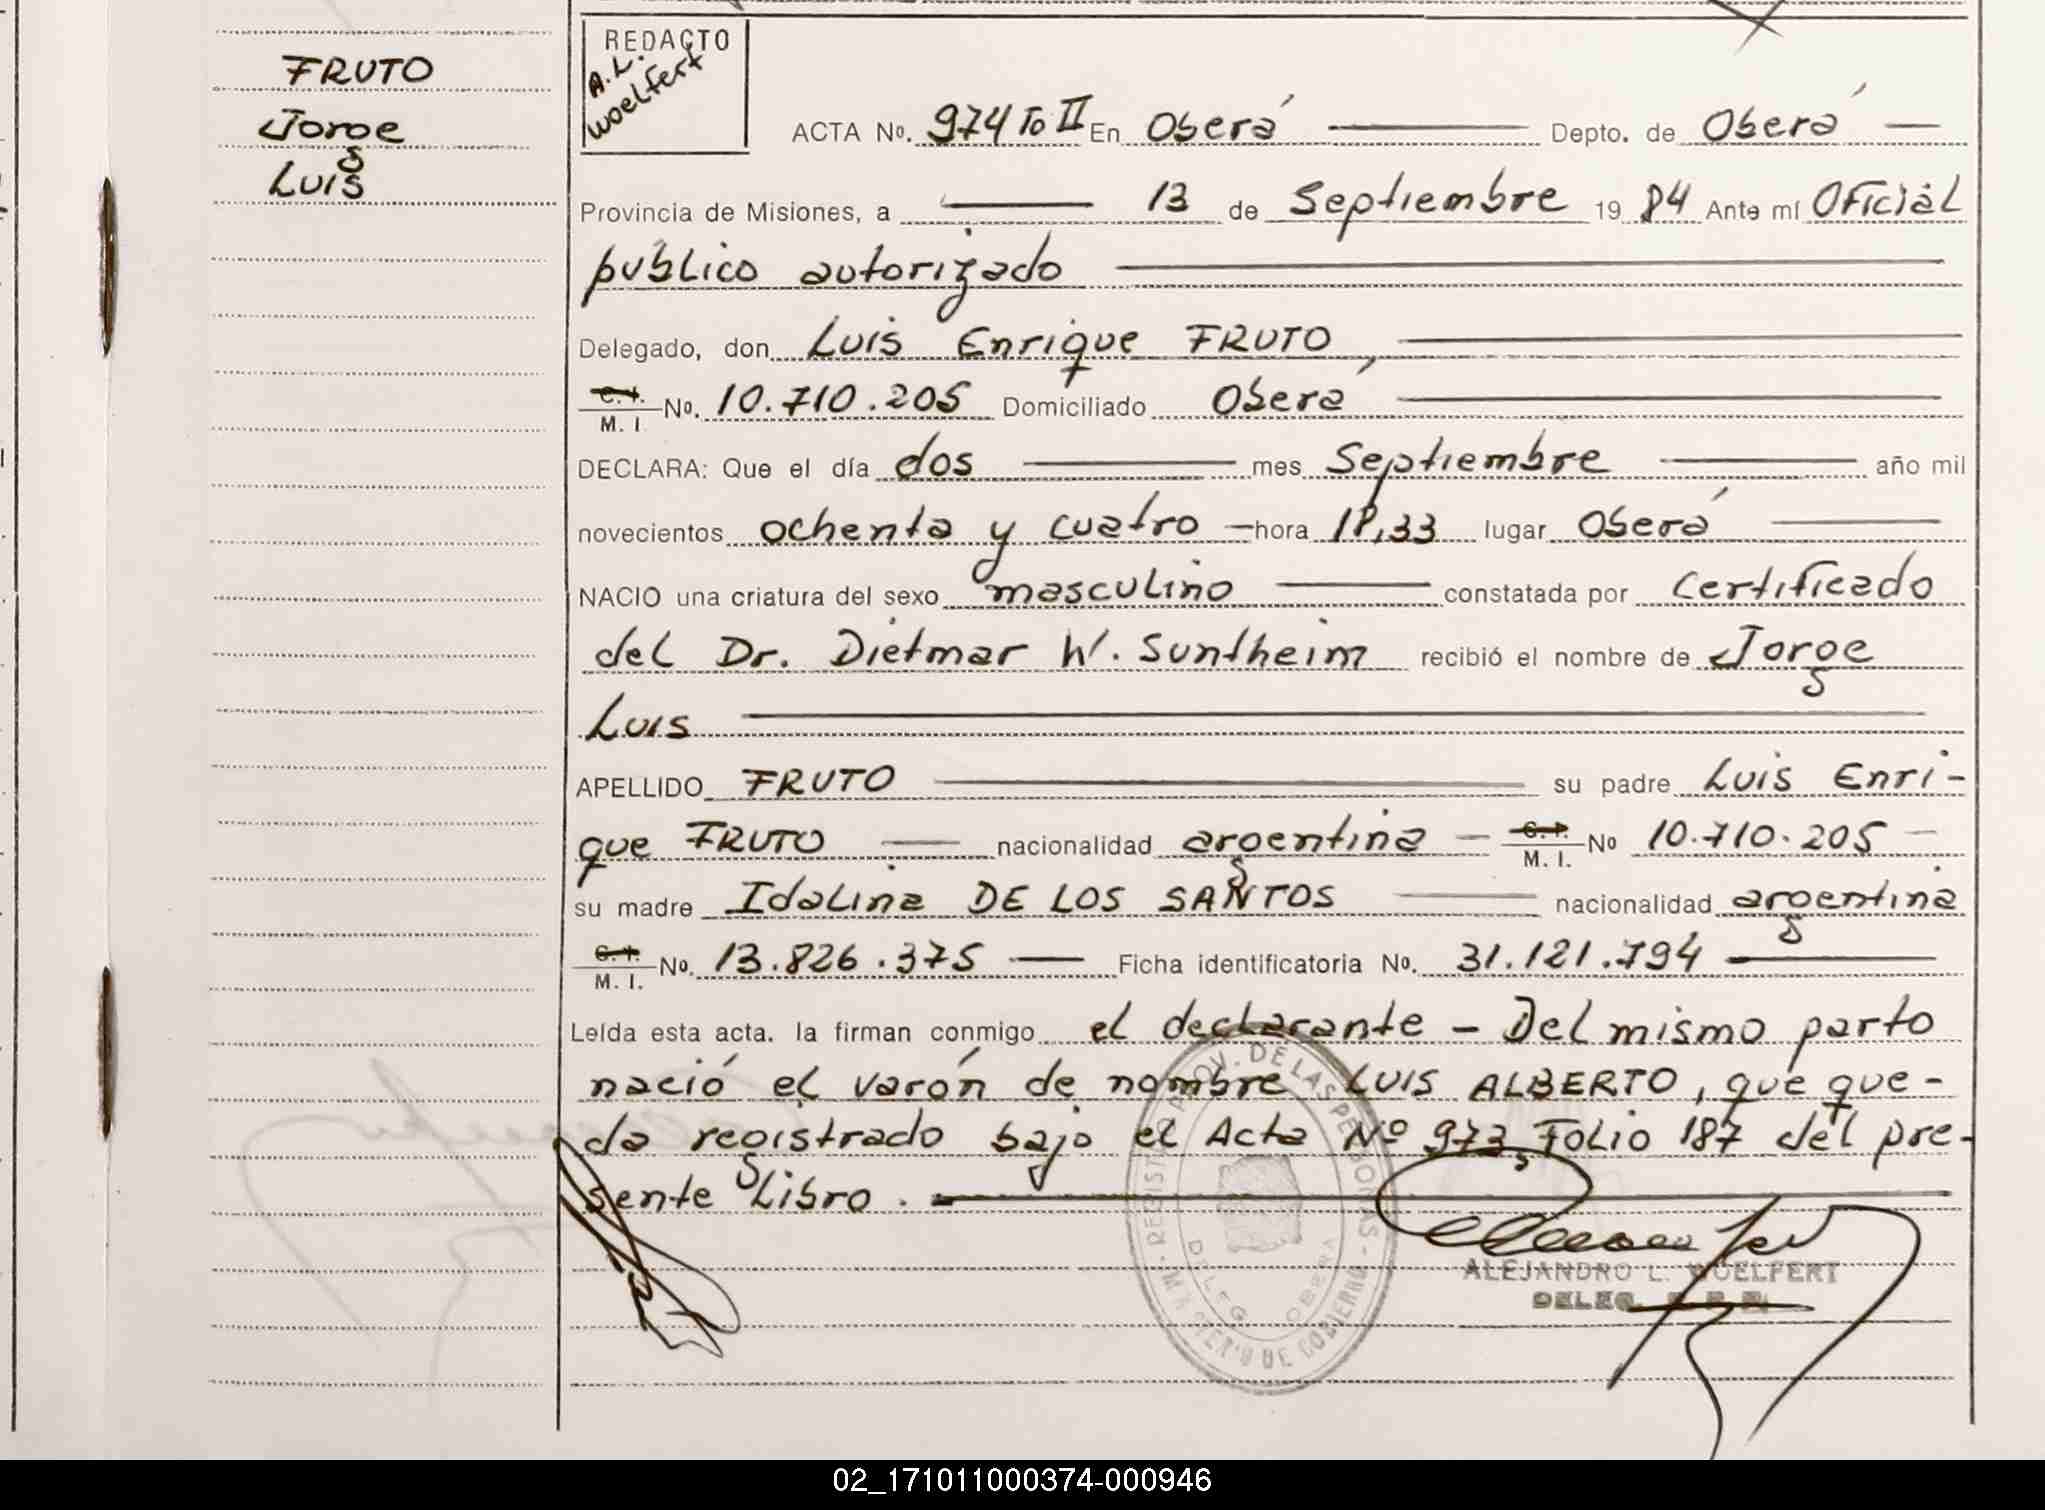 FRUTO
Jorge
Luis
REDACTO
A. L.
Woelfert
ACTA No. 974 To II En Oberá Depto. de Oberá
Provincia de Misiones, a 13 de Septiembre 1984 Ante mí Oficial
público autorizado
Delegado, don Luis Enrique FRUTO,
C. I. M. I No. 10.710.205 Domiciliado Oberá
DECLARA: Que el día dos mes Septiembre año mil
novecientos ochenta y cuatro hora 18,33 lugar Oberá
NACIO una criatura del sexo masculino constatada por Certificado
del Dr. Dietmar W. Suntheim recibió el nombre de Jorge
Luis
APELLIDO FRUTO su padre Luis Enri-
que FRUTO nacionalidad argentina C. I. M. I. No 10.710.205
su madre Idalina DE LOS SANTOS nacionalidad argentina
C. I. M. I. No. 13.826.375 Ficha identificatoria No. 31.121.794
Leída esta acta. la firman conmigo el declarante - Del mismo parto
nació el varón de nombre LUIS ALBERTO, que que-
da registrado bajo el Acta Nº 973, Folio 187 del pre-
sente Libro.
REGISTRO PROV. DE LAS PERSONAS
MINISTERIO DE GOBIERNO
DELEG. OBERA
ALEJANDRO L. WOELFERT
DELEG.
02_171011000374-000946